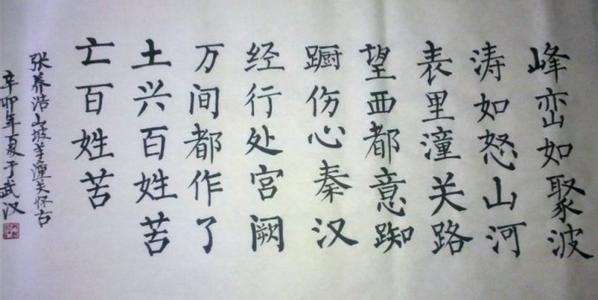 峰峦如聚波
涛如怒山河
表里潼关路
望西都意踟
蹰伤心秦汉
经行处宫阙
万间都作了
土兴百姓苦
亡百姓苦
张养浩山坡羊潼关怀古
辛卯年夏于武汉